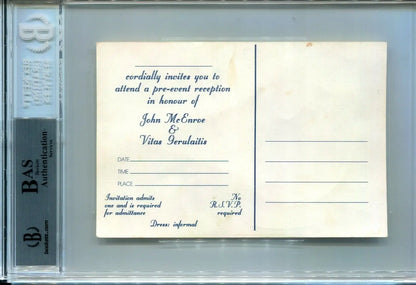 cordially invites you to
attend a pre-event reception
in honour of
John McEnroe
&
Vitas Gerulaitis
DATE
TIME
PLACE
Invitation admits
one and is required
for admittance
No
R.S.V.P.
required
Dress: informal
BAS
Beckett
Authentication
Services